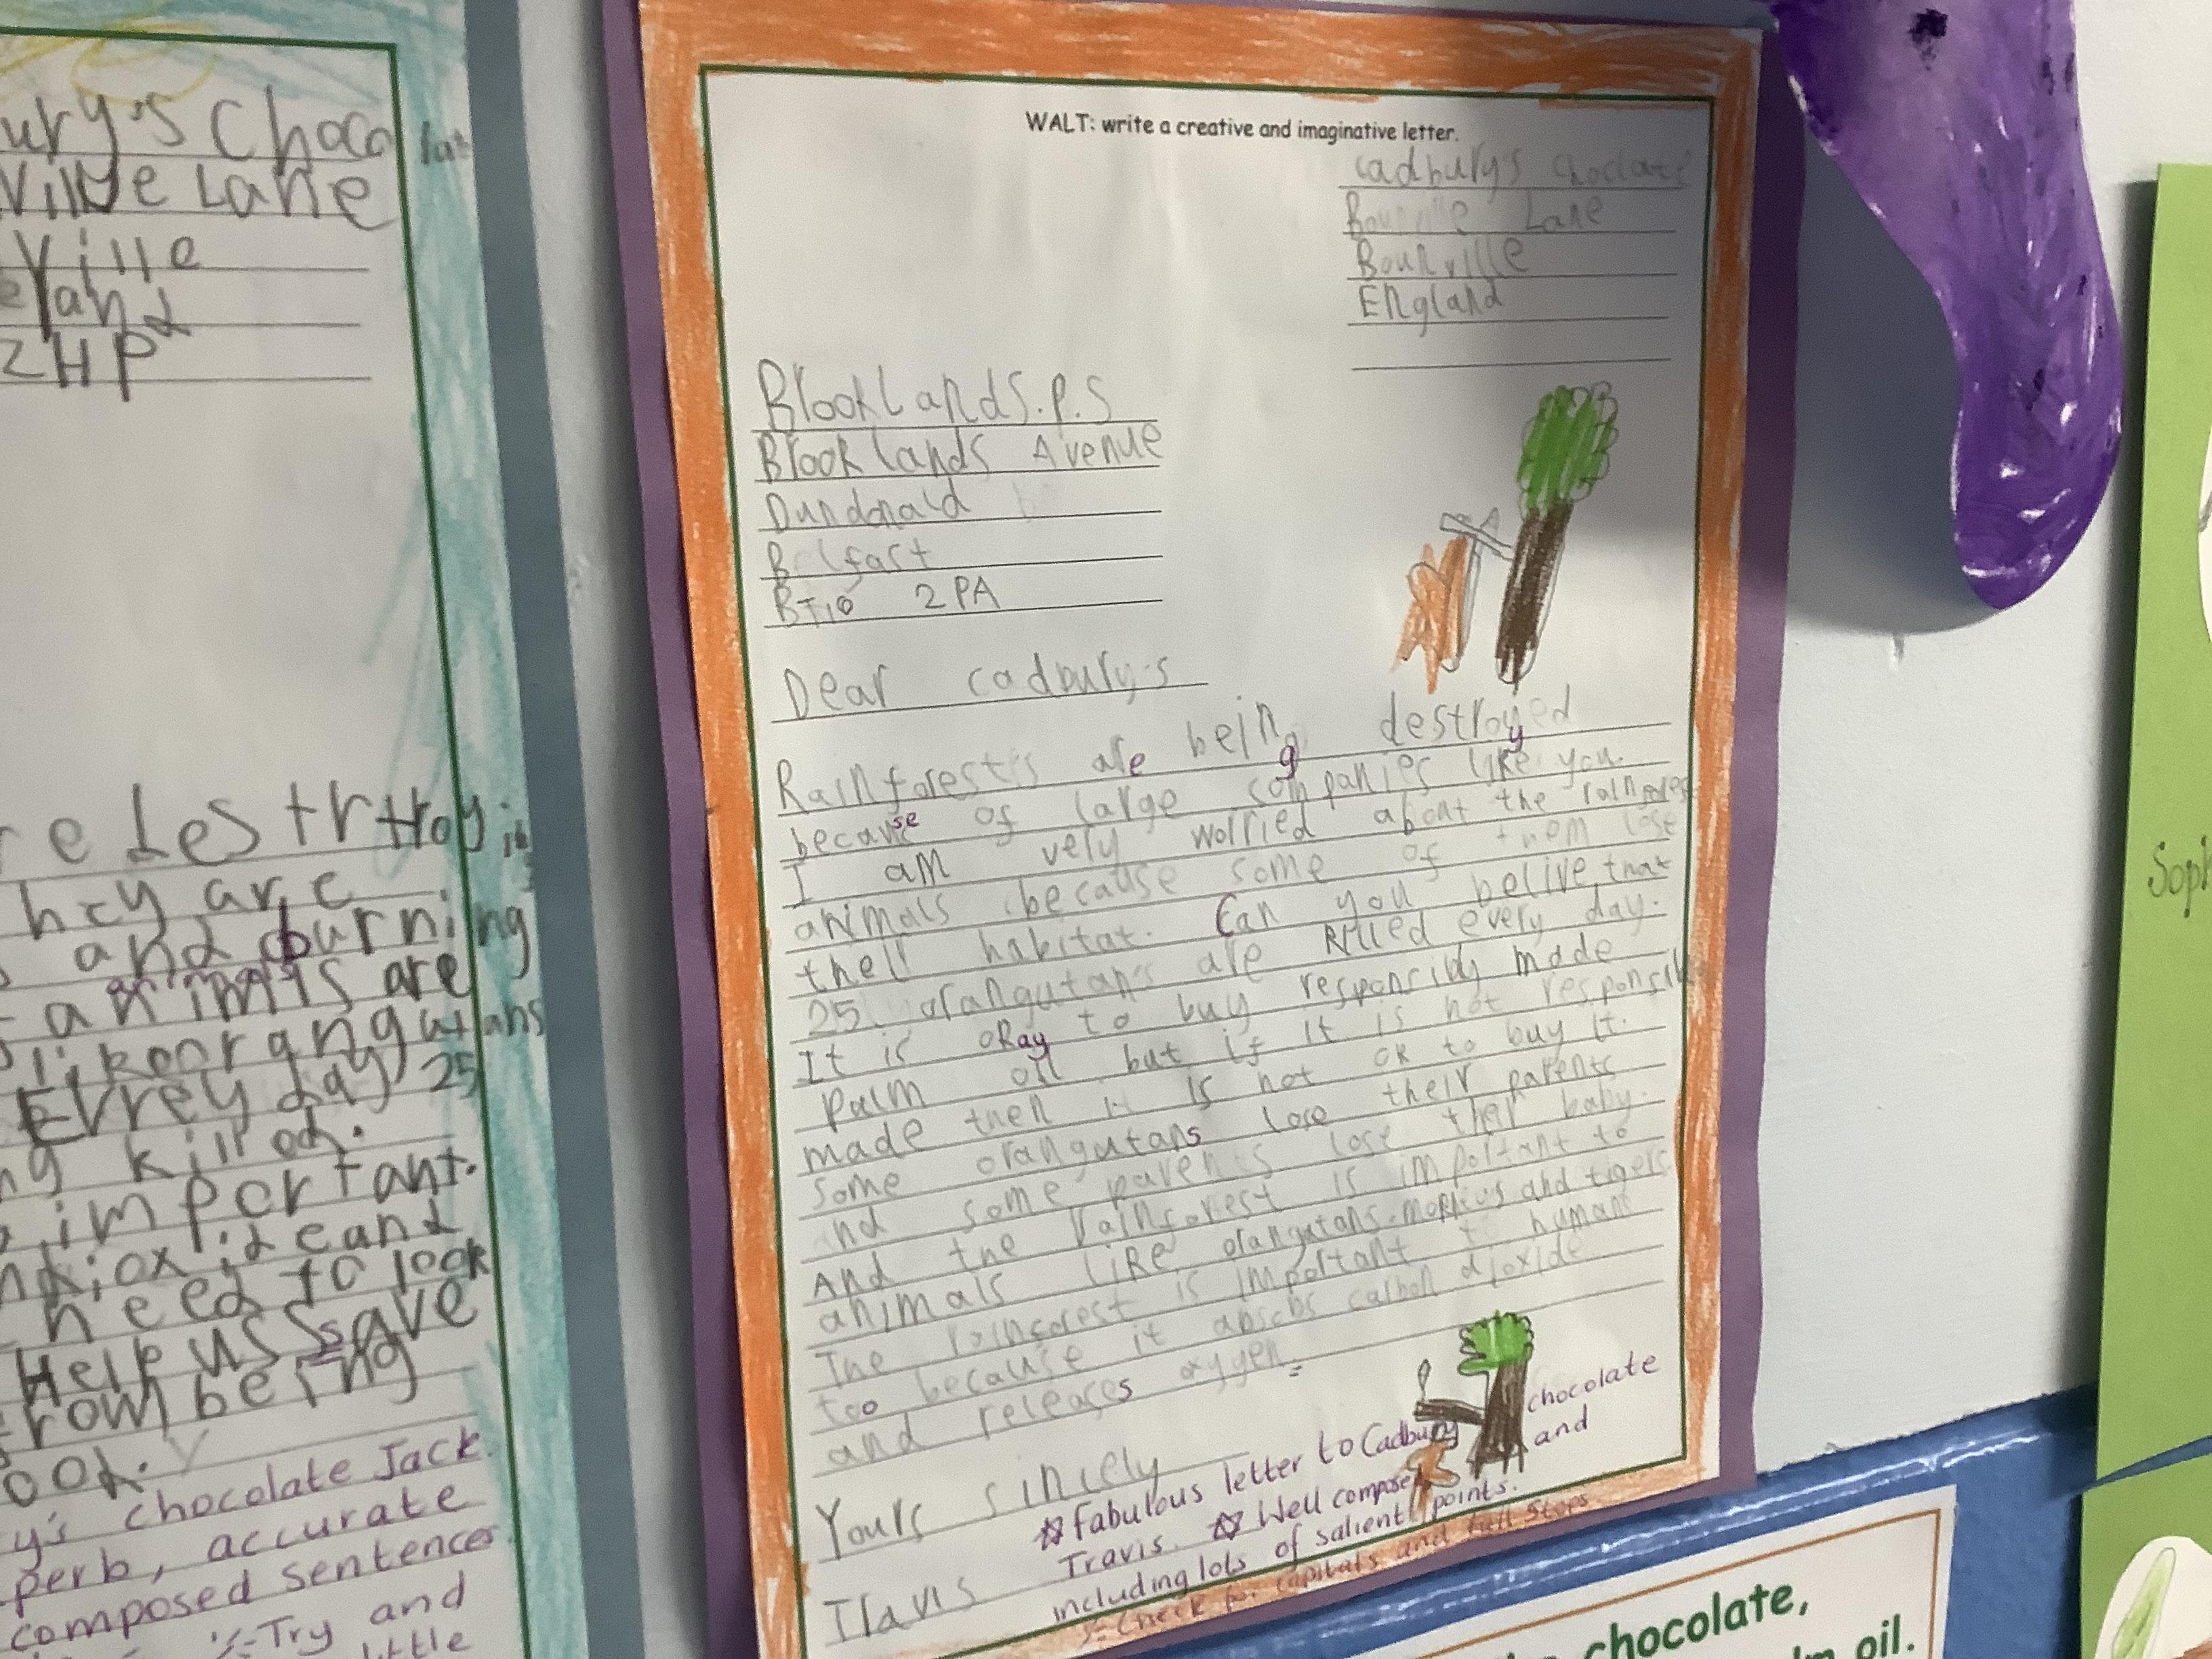 ury's Chocolat
ville Lane
ville
2HP
re destrtroy
they are
and burning
animals are
like orangutans
Evrey day 25
ng killed.
important.
need to look
Help us save
from being
y's chocolate Jack.
perb, accurate
composed sentences
Try and
little
WALT: write a creative and imaginative letter.
Cadbury's Choclate
Bournville Lane
Bournville
England
Brooklands.P.S
Brooklands Avenue
Dundonald
Belfast
BT16 2PA
Dear cadbury's
Rainforests are being destroyed
because of large companies like you.
I am very worried about the rainforest
animals because some of them lose
their habitat. Can you belive that
25 orangutan's are killed every day.
It is okay to buy responsibly made
palm oil but if it is not responsible
made then it is not ok to buy it.
some orangutans lose their parents
and some parents lose their baby.
And the rainforest is important to
animals like orangutans. monkeys and tigers
The rainforest is important to humans
too because it absobs carbon dioxide
and releases oxygen
Yours sincely
Travis
Fabulous letter to Cadbury chocolate
Travis. Well composed and
including lots of salient points.
Check for capitals and full stops
Soph
chocolate,
oil.